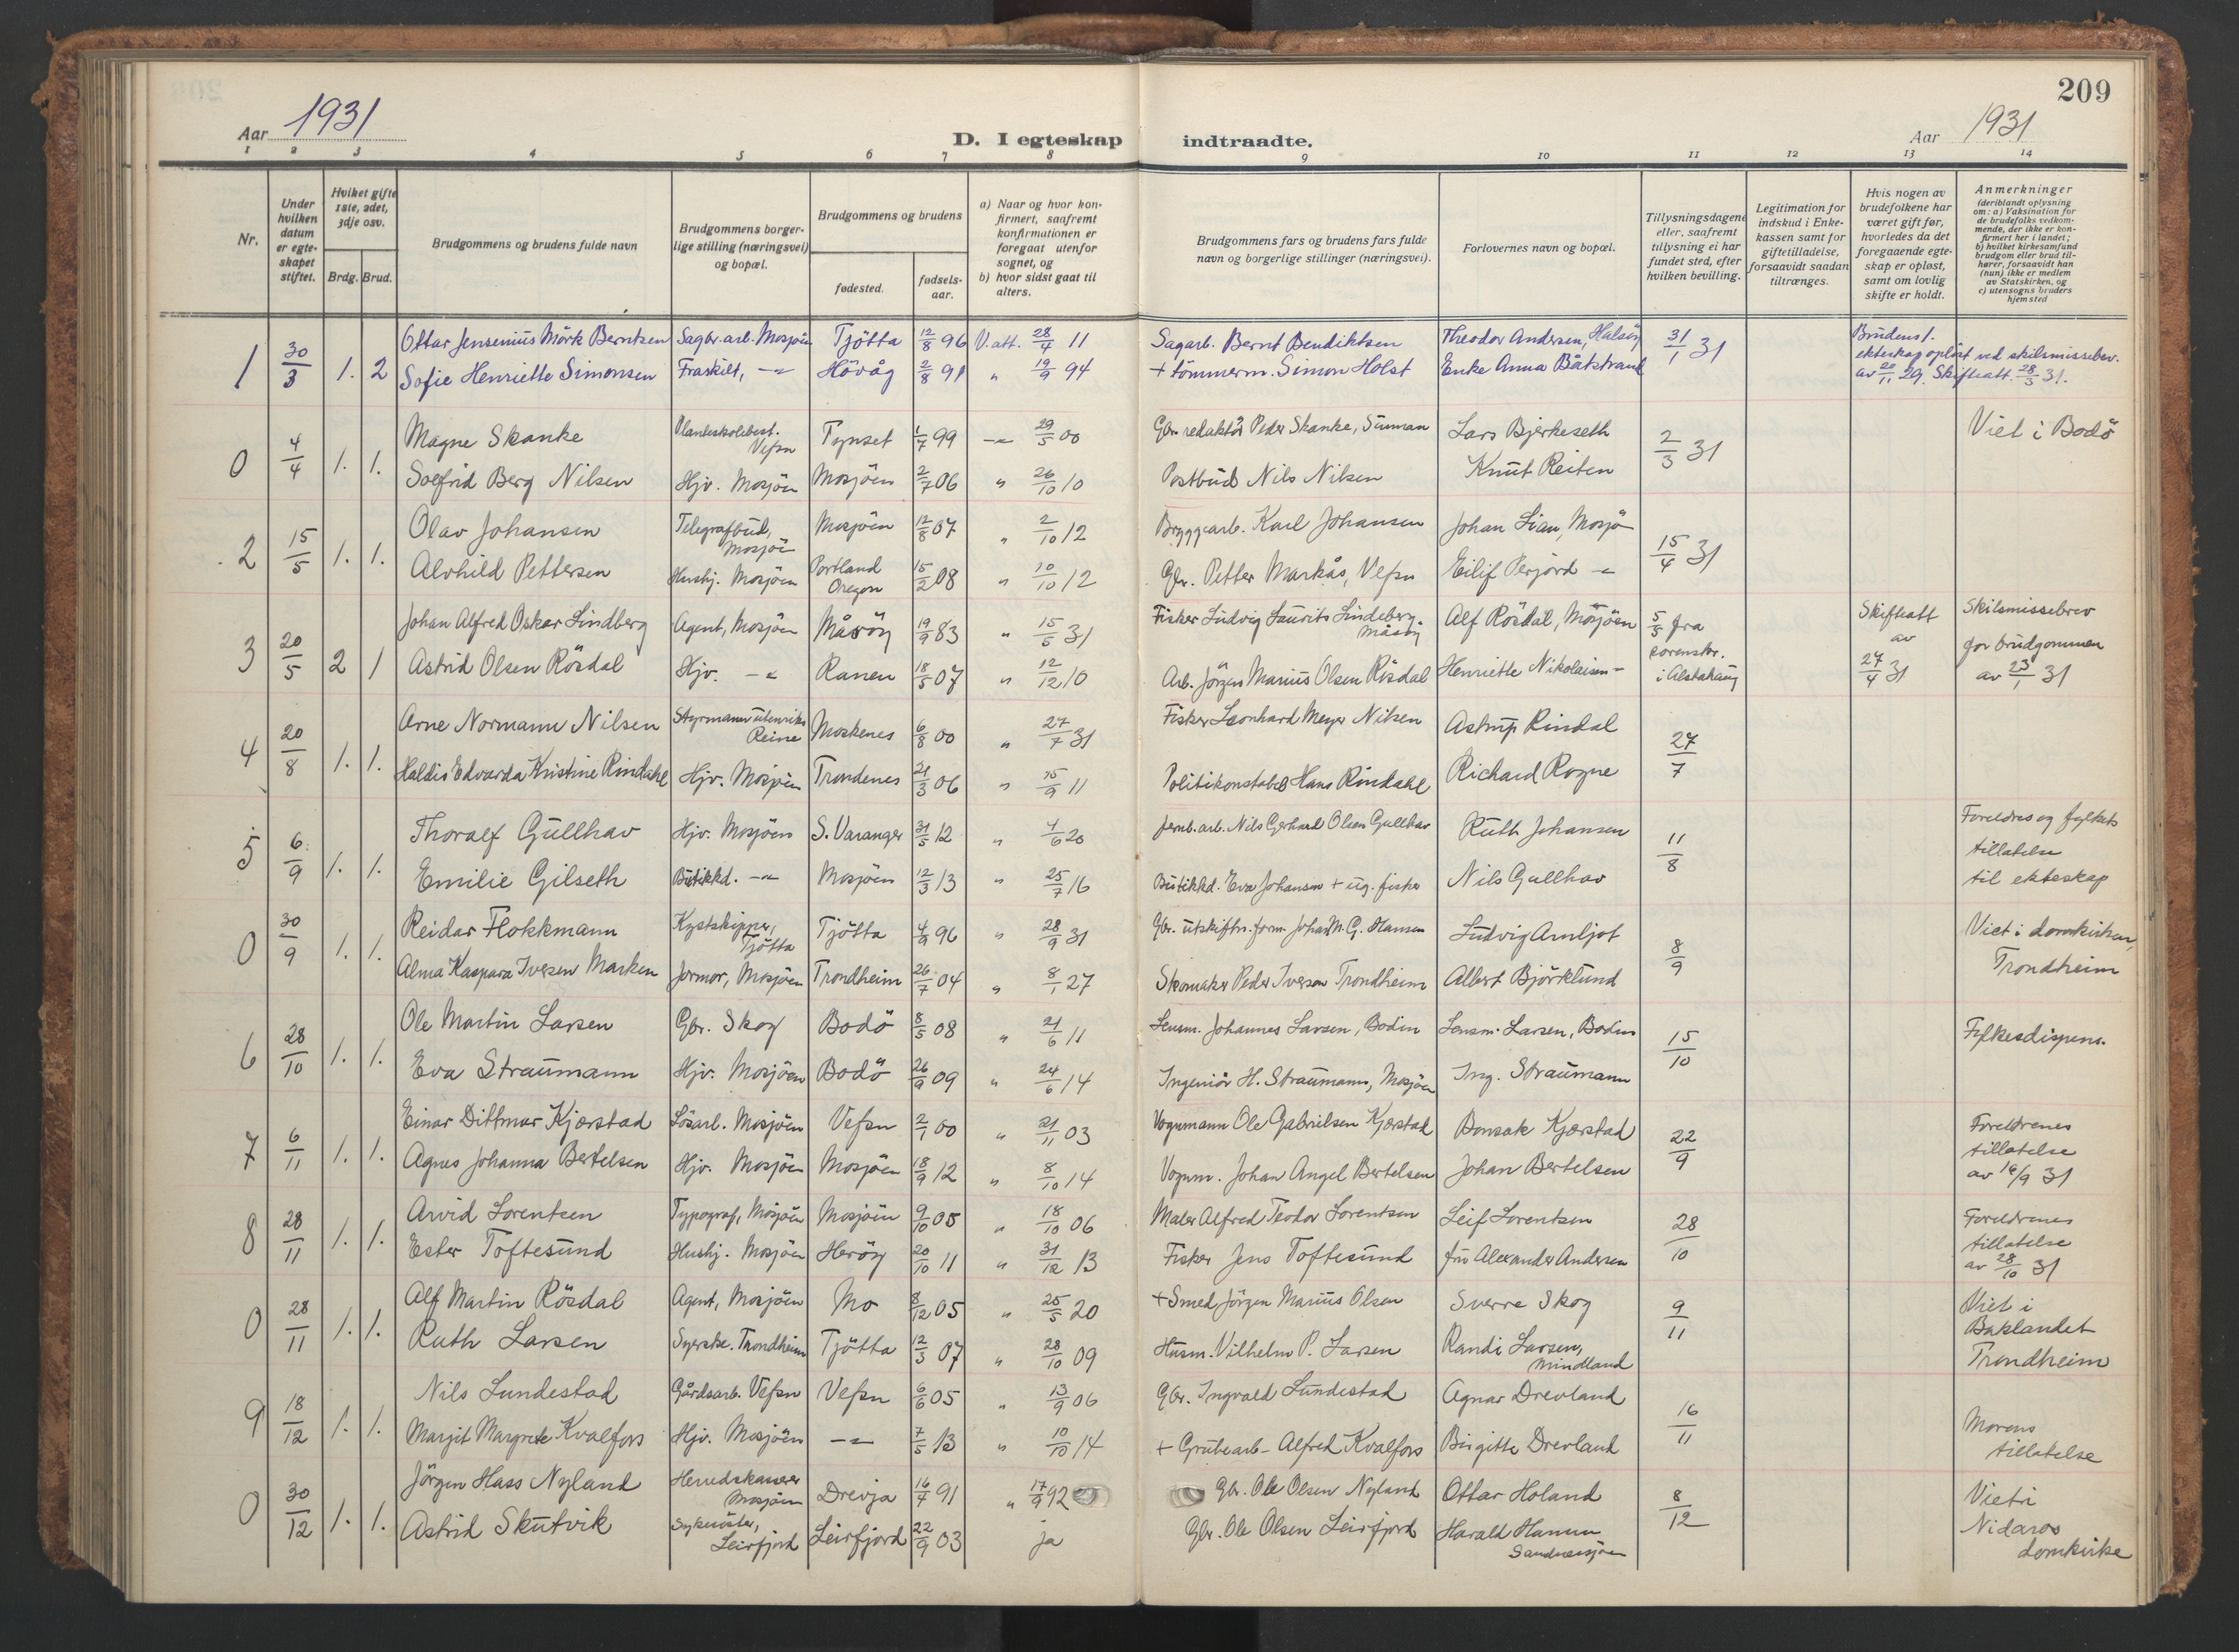 209
Aar 1931
D. I egteskap indtraadte.
Aar 1931
1 2 3 4 5 6 7 8 9 10 11 12 13 14
Nr.
Under hvilken datum er egteskapet stiftet.
Hvilket gifte 1ste, 2det, 3dje osv.
Brdg. Brud.
Brudgommens og brudens fulde navn
Brudgommens borgerlige stilling (næringsvei) og bopæl.
Brudgommens og brudens
fødested.
fødselsaar.
a) Naar og hvor konfirmert, saafremt konfirmationen er foregaat utenfor sognet, og
b) hvor sidst gaat til alters.
Brudgommens fars og brudens fars fulde navn og borgerlige stillinger (næringsvei).
Forlovernes navn og bopæl.
Tillysningsdagene eller, saafremt tillysning ei har fundet sted, efter hvilken bevilling.
Legitimation for indskud i Enkekassen samt for giftetilladelse, forsaavidt saadan tiltrænges.
Hvis nogen av brudefolkene har været gift før, hvorledes da det foregaaende egteskap er opløst, samt om lovlig skifte er holdt.
Anmerkninger (deriblandt oplysning om: a) Vaksination for de brudefolks vedkommende, der ikke er konfirmert her i landet; b) hvilket kirkesamfund brudgom eller brud tilhører, forsaavidt han (hun) ikke er medlem av Statskirken, og c) utensogns bruders hjemsted
1 30/3 1. 2 Ottar Jensenius Mørk Berntsen Sagbr.arb. Mosjøen Tjøtta 12/8 96 V.att. 28/4 11 Sagarb. Bernt Bendiktsen Theodor Andersen, Halsøy 31/1 31 Brudens 1. ekteskap opløst ved skilsmissebev. av 20/11 29. Skifteatt. 28/3 31.
Sofie Henriette Simonsen Fraskilt, -"- Høvåg 2/8 91 " 19/9 94 + tømmerm. Simon Holst Enke Anna Båtstrand
0 4/4 1. 1. Magne Skanke Planteskolebest. Vefsn Tynset 1/7 99 -"- 29/5 00 Gbr. redaktør Peder Skanke, Lars Bjerkeseth 2/3 31 Viet i Bodø
Solfrid Berg Nilsen Hjv. Mosjøen Mosjøen 2/7 06 " 26/10 10 Postbud Nils Nilsen Knut Reiten
2 15/5 1. 1. Olav Johansen Telegrafbud, Mosjøen Mosjøen 12/8 07 " 2/10 12 Bryggearb. Karl Johansen Johan Lian, Mosjø 15/4 31
Alvhild Pettersen Hushj. Mosjøen Portland Oregon 15/2 08 " 10/10 12 Gbr. Petter Markås, Vefsn Eilif Perjord -"-
3 20/5 2 1 Johan Alfred Oskar Lindberg Agent, Mosjøen Måsøy 19/9 83 " 15/5 31 Fisker Ludvig Laurits Lindeberg. Måsøy Alf Røsdal, Mosjøen 5/5 fra sorenskr. i Alstahaug Skifteatt av 27/4 31 Skilsmissebrev for brudgommen av 23/1 31
Astrid Olsen Røsdal Hjv. -"- Ranen 18/5 07 " 12/12 10 Arb. Jørgen Marius Olsen Røsdal Henriette Nikolaisen -"-
4 20/8 1. 1. Arne Normann Nilsen Styrmann utenriks Reine Moskenes 6/8 00 " 27/7 31 Fisker Leonhard Meyer Nilsen Astrup Rindal 27/7
Haldis Edvarda Kristine Rindahl Hjv. Mosjøen Trondenes 21/3 06 " 15/9 11 Politikonstabel Hans Rindahl Richard Rogne
5 6/9 1. 1. Thoralf Gullhav Hjv. Mosjøen S. Varanger 31/5 12 " 4/6 20 Jernb.arb. Nils Gerhard Olsen Gullhav Ruth Johansen 11/8 Foreldres og fylkets tillatelse til ekteskap
Emilie Gilseth Butikkd. -"- Mosjøen 12/3 13 " 25/7 16 Butikkd. Eva Johansen + ug. fisker Nils Gullhav
0 30/9 1. 1. Reidar Flokkmann Kystskipper, Tjøtta Tjøtta 4/9 96 " 28/9 31 Gbr. utskiftn.form. Johan M. G. Hansen Ludvig Arnljot 8/9 Viet i domkirken, Trondheim
Alma Kaspara Iversen Marken Jormor, Mosjøen Trondheim 26/7 04 " 8/1 27 Skomaker Peder Iversen Trondheim Albert Bjørklund
6 28/10 1. 1. Ole Martin Larsen Gbr. Skog Bodø 8/5 08 " 21/6 11 Lensm. Johannes Larsen, Bodin Lensm. Larsen, Bodin 15/10 Fylkesdispens.
Eva Straumann Hjv. Mosjøen Bodø 26/9 09 " 24/6 14 Ingeniør H. Straumann, Mosjøen Ing. Straumann
7 6/11 1. 1. Einar Dittmar Kjærstad Løsarb. Mosjøen Vefsn 2/1 00 " 21/11 03 Vognmann Ole Gabrielsen Kjærstad Bonsak Kjærstad 22/9 Foreldrenes tillatelse av 16/9 31
Agnes Johanna Bertelsen Hjv. Mosjøen Mosjøen 18/9 12 " 8/10 14 Vognm. Johan Angel Bertelsen Johan Bertelsen
8 28/11 1. 1. Arvid Lorentsen Typograf, Mosjøen Mosjøen 9/10 05 " 18/10 06 Maler Alfred Teodor Lorentsen Leif Lorentsen 28/10 Foreldrenes tillatelse av 28/10 31
Ester Toftesund Hushj. Mosjøen Herøy 20/10 11 " 31/12 13 Fisker Jens Toftesund fru Alexander Andersen
0 28/11 1. 1. Alf Martin Røsdal Agent, Mosjøen Mo 8/12 05 " 25/5 20 + Smed Jørgen Marius Olsen Sverre Skog 9/11 Viet i Baklandet Trondheim
Ruth Larsen Syerske. Trondheim Tjøtta 12/3 07 " 28/10 09 Husm. Vilhelm P. Larsen Randi Larsen, Mindland
9 18/12 1. 1. Nils Lundestad Gårdsarb. Vefsn Vefsn 6/6 05 " 13/9 06 Gbr. Ingvald Lundestad Agnar Drevland 16/11 Morens tillatelse
Margit Margrete Kvalfors Hjv. Mosjøen -"- 7/5 13 " 10/10 14 + Grubearb. Alfred Kvalfors Birgitte Drevland
0 30/12 1. 1. Jørgen Hass Nyland Herredskasserer Mosjøen Drevja 16/7 91 " 17/9 92 Gbr. Ole Olsen Nyland Ottar Holand 8/12 Viet i Nidaros domkirke
Astrid Skutvik Sykesøster, Leirfjord Leirfjord 22/9 03 ja Gbr. Ole Olsen Leirfjord Harald Hamnn Sandnessjøen